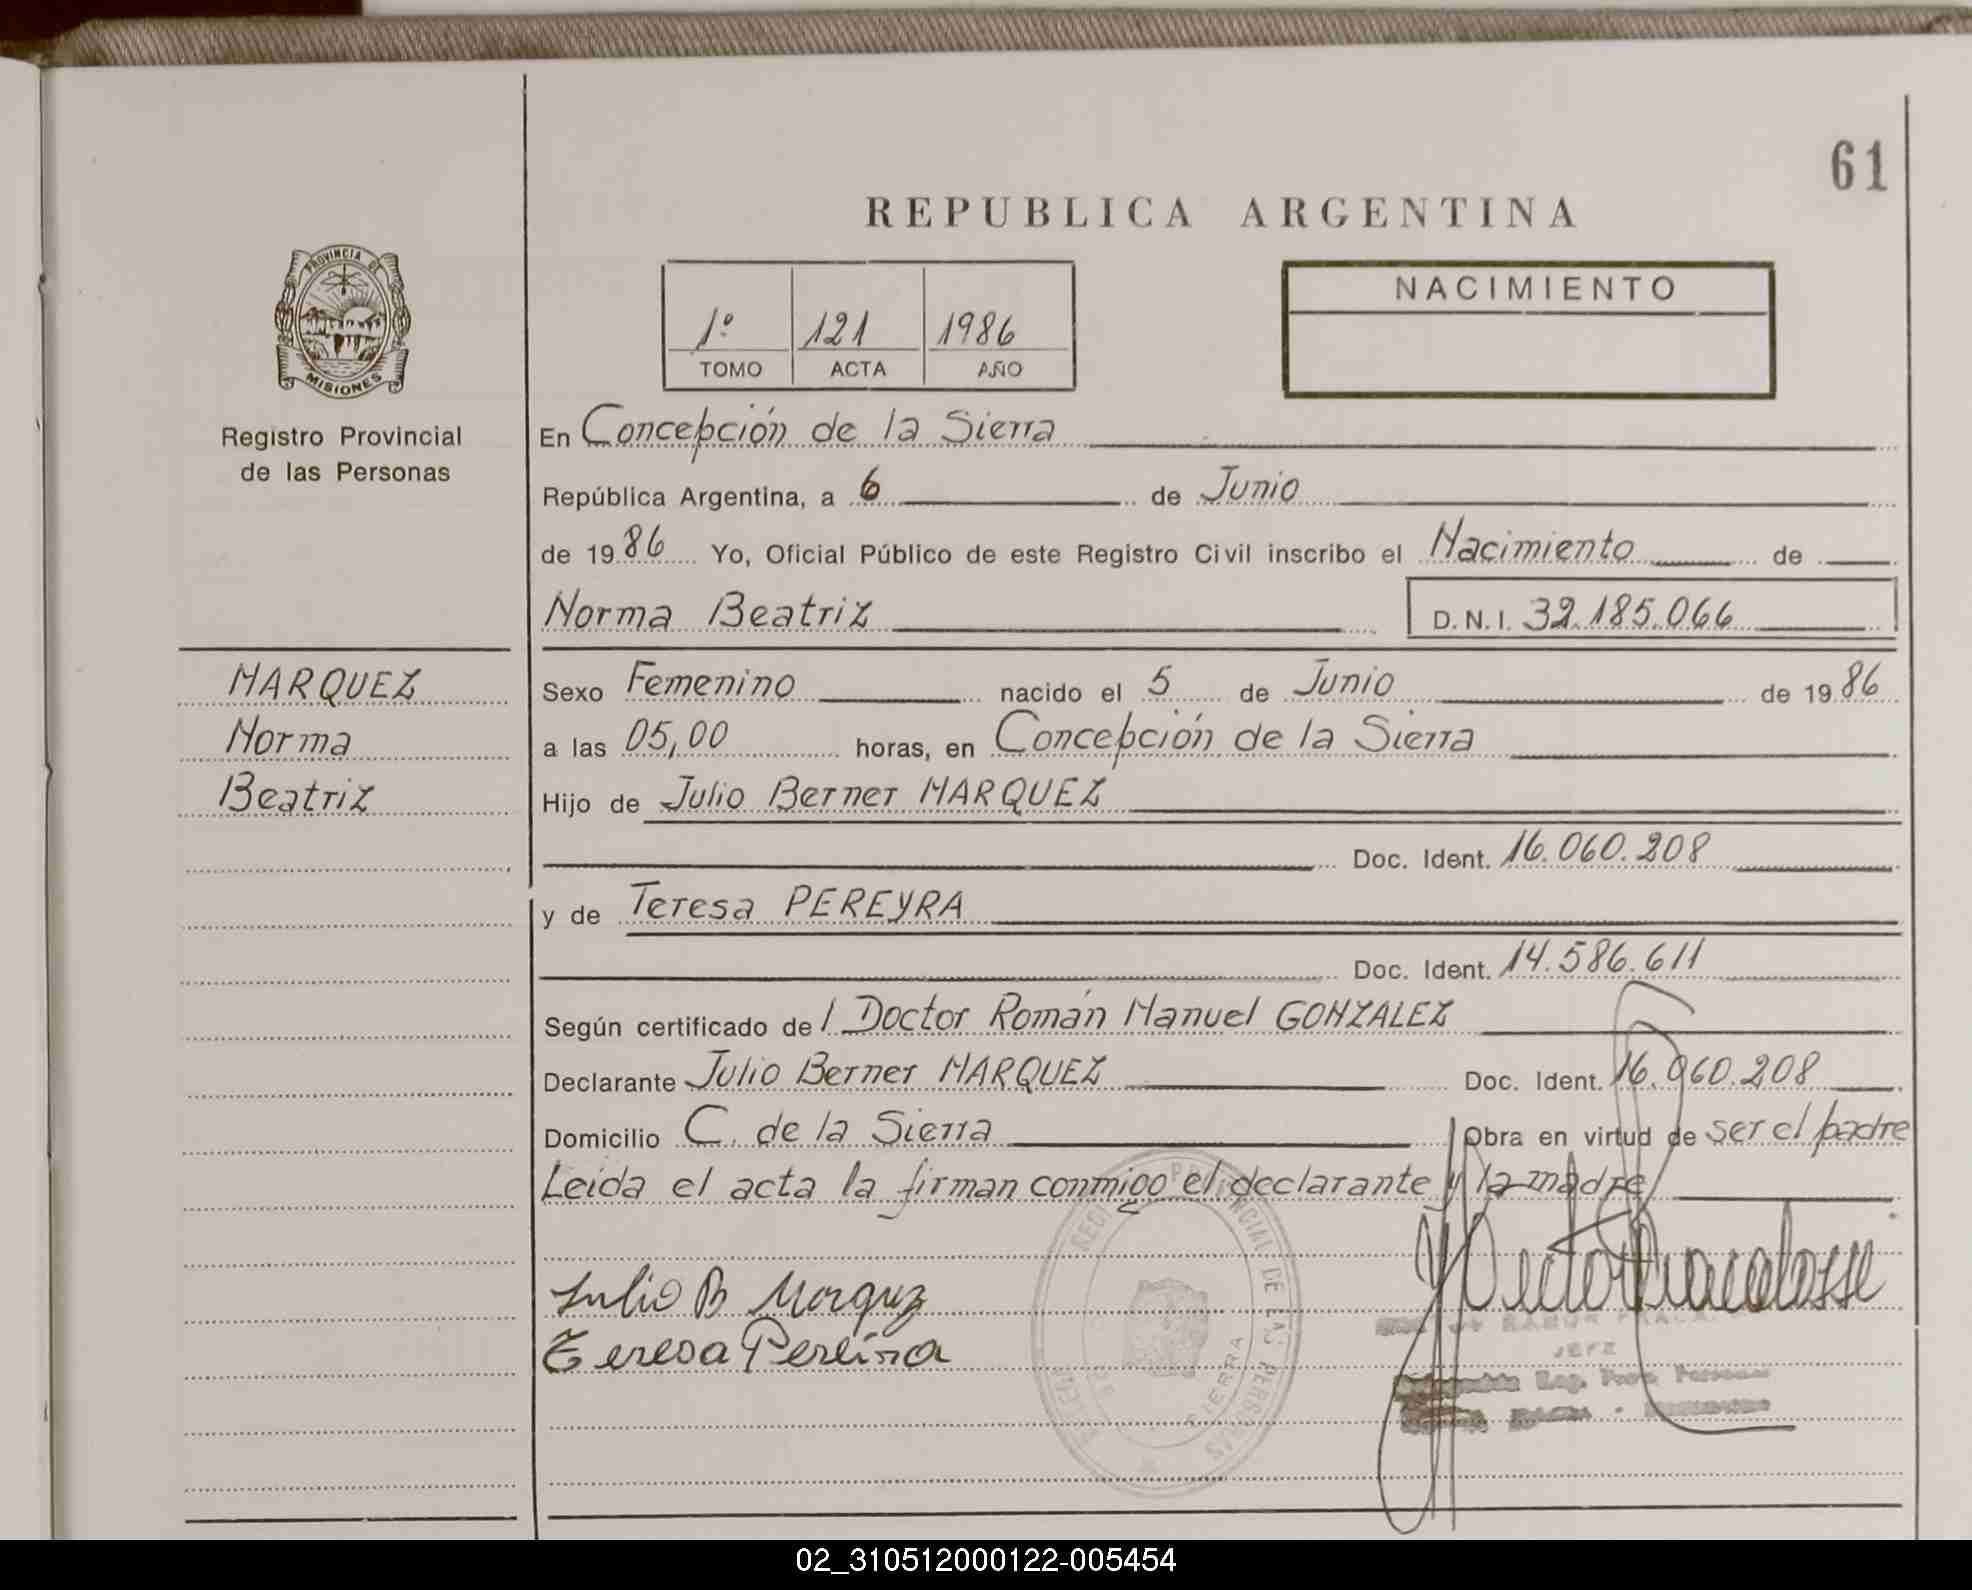 61
REPUBLICA ARGENTINA
PROVINCIA DE
MISIONES
Registro Provincial
de las Personas
1º 121 1986
TOMO ACTA AÑO
NACIMIENTO
En Concepción de la Sierra
República Argentina, a 6 de Junio
de 1986 Yo, Oficial Público de este Registro Civil inscribo el Nacimiento de
Norma Beatriz D.N.I. 32.185.066
MARQUEZ
Norma
Beatriz
Sexo Femenino nacido el 5 de Junio de 1986
a las 05,00 horas, en Concepción de la Sierra
Hijo de Julio Berner MARQUEZ
Doc. Ident. 16.060.208
y de Teresa PEREYRA
Doc. Ident. 14.586.611
Según certificado del Doctor Román Manuel GONZALEZ
Declarante Julio Berner MARQUEZ Doc. Ident. 16.060.208
Domicilio C. de la Sierra Obra en virtud de ser el padre
Leida el acta la firman conmigo el declarante y la madre
Julio B Marquz
Teresa Pereira
DE LAS PERSONAS
SIERRA
JEFE
02_310512000122-005454